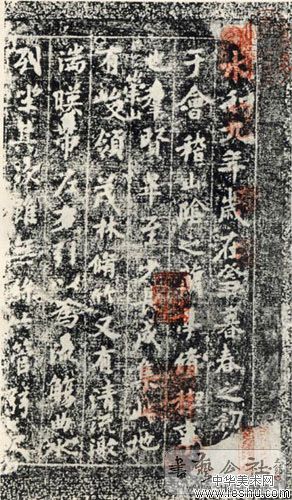 永和九年歲在癸丑暮春之初
于會稽山陰之蘭亭脩稧事
也羣賢畢至少長咸集此地
崇山
有峻領茂林脩竹又有清流激
湍暎帶左右引以為流觴曲水
列坐其次雖無絲竹管弦之
書藝公社
中华美术网
www.loshu.com